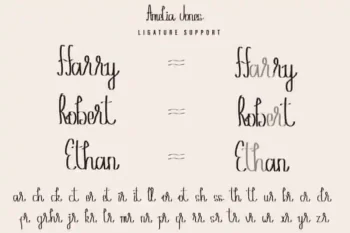 Amelia Jones
LIGATURE SUPPORT
Harry = Harry
Robert = Robert
Ethan = Ethan
ar ch ck ct er et ir it ll or ot sh ss th tl ur br cr dr
fr gr hr jr kr lr mr nr pr qr rr sr tr vr wr xr yr zr